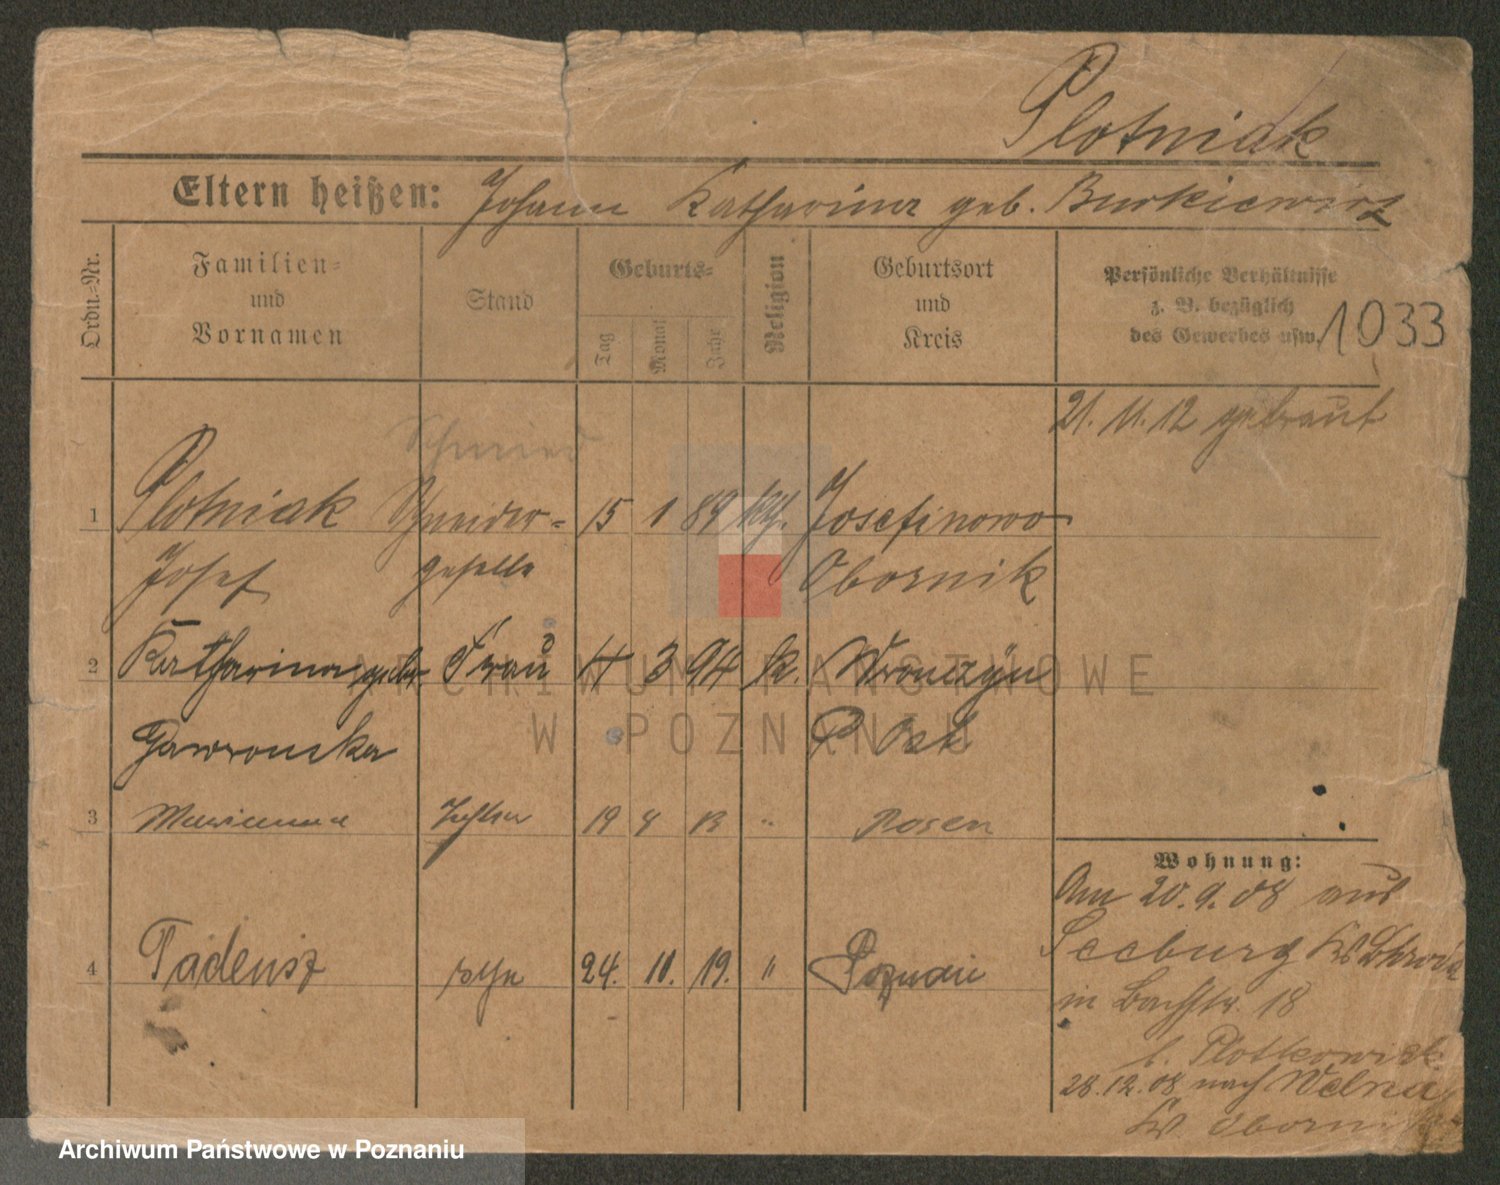 Plotniak
Eltern heißen: Johann Katharina geb. Burkiewicz
Ordn.-Nr.
Familien- und Vornamen
Stand
Geburts-
Tag Monat Jahr
Religion
Geburtsort und Kreis
Persönliche Verhältnisse
z. B. bezüglich
des Gewerbes usw.
1033
21. 11. 12 getraut
Schmied
1 Plotniak Schneider- 15 1 89 kth. Josefinowo
Josef geselle Obornik
2 Katharina geb. Frau 14 3 94 k. Wronczyn
Gawronska P. Ost
3 Marianna Tochter 19 8 13 " Posen
4 Tadeusz sohn 24. 11. 19. " Poznań
Wohnung:
Am 20.9.08 aus
Seeburg Kr Schroda
in Bachstr. 18
b. Plotkowiak
28.12.08 nach Welna
Kr Obornik
ARCHIWUM PAŃSTWOWE
W POZNANIU
Archiwum Państwowe w Poznaniu